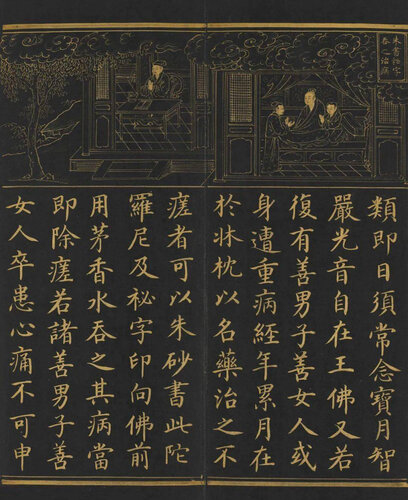 朱書祕字
吞之治病
類即日須常念寶月智
嚴光音自在王佛又若
復有善男子善女人或
身遭重病經年累月在
於牀枕以名藥治之不
瘥者可以朱砂書此陀
羅尼及祕字印向佛前
用茅香水吞之其病當
即除瘥若諸善男子善
女人卒患心痛不可申